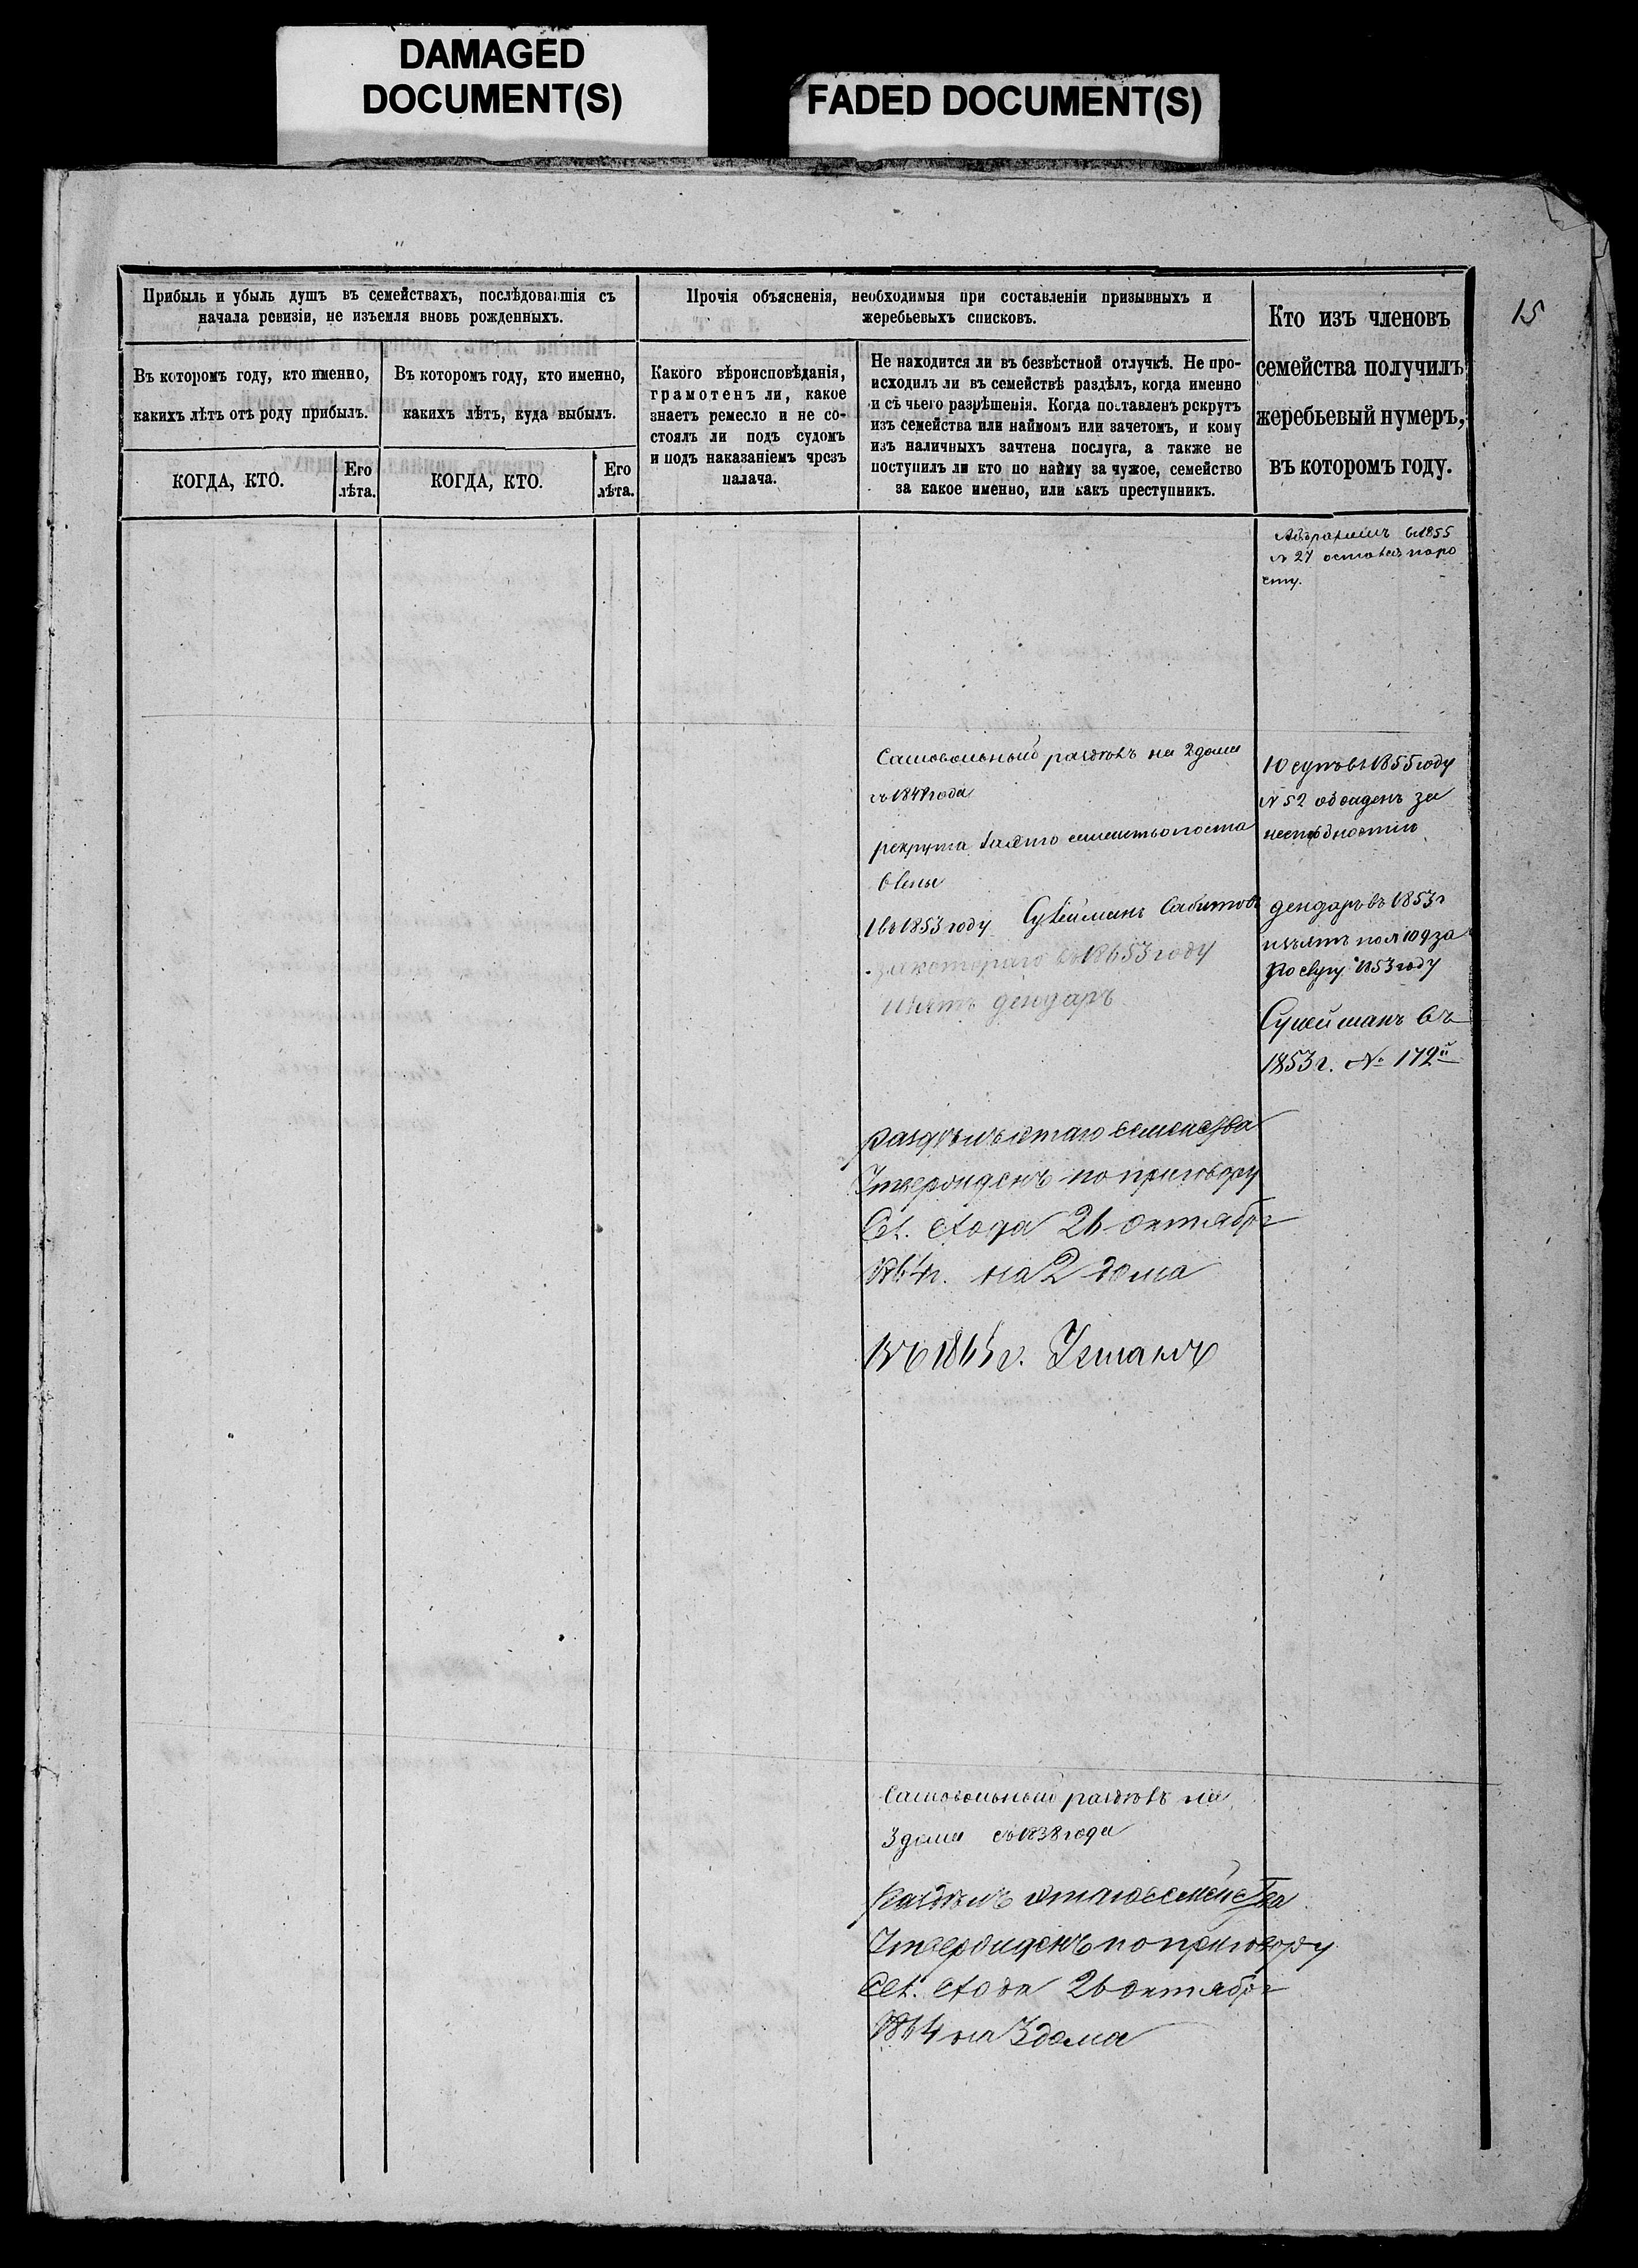 DAMAGED
DOCUMENT(S)
FADED DOCUMENT(S)
15
Прибыль и убыль душъ въ семействахъ, послѣдовавшія съ
начала ревизіи, не изъемля вновь рожденныхъ.
Въ которомъ году, кто именно,
какихъ лѣтъ отъ роду прибылъ.
КОГДА, КТО.
Его
лѣта.
Въ которомъ году, кто именно,
какихъ лѣтъ, куда выбылъ.
КОГДА, КТО.
Его
лѣта.
Прочія объясненія, необходимыя при составленіи призывныхъ и
жеребьевыхъ списковъ.
Какого вѣроисповѣданія,
грамотенъ ли, какое
знаетъ ремесло и не со-
стоялъ ли подъ судомъ
и подъ наказаніемъ чрезъ
палача.
Не находится ли въ безвѣстной отлучкѣ. Не про-
исходилъ ли въ семействѣ раздѣлъ, когда именно
и съ чьего разрѣшенія. Когда поставленъ рекрутъ
изъ семейства или наймомъ или зачетомъ, и кому
изъ наличныхъ зачтена послуга, а также не
поступилъ ли кто по найму за чужое, семейство
за какое именно, или какъ преступникъ.
Кто изъ членовъ
семейства получилъ
жеребьевый нумеръ,
въ которомъ году.
в 1855
№ 27 по ро
сту.
Самовольный раздѣлъ на 2 дома
съ 184 года
рекрута поста
влены
1 въ 1853 году Сулейманъ Сабитовъ
за котораго въ 18653 году
изъятъ
въ 1855 году
№ 52 за
въ 1853 г
изъятъ 109 за
послугу 1853 году
Сулейманъ въ
1853 г. № 172й
раздѣлъ этаго семейства
Утвержденъ по приговору
Сел. схода 26 октября
1864 г. на 2 дома
Въ 1865 г. Усманъ
Самовольный раздѣлъ на
3 дома съ 1838 года
Раздѣлъ этаго семейства
Утвержденъ по приговору
Сел. схода 26 октября
1864 на 3 дома